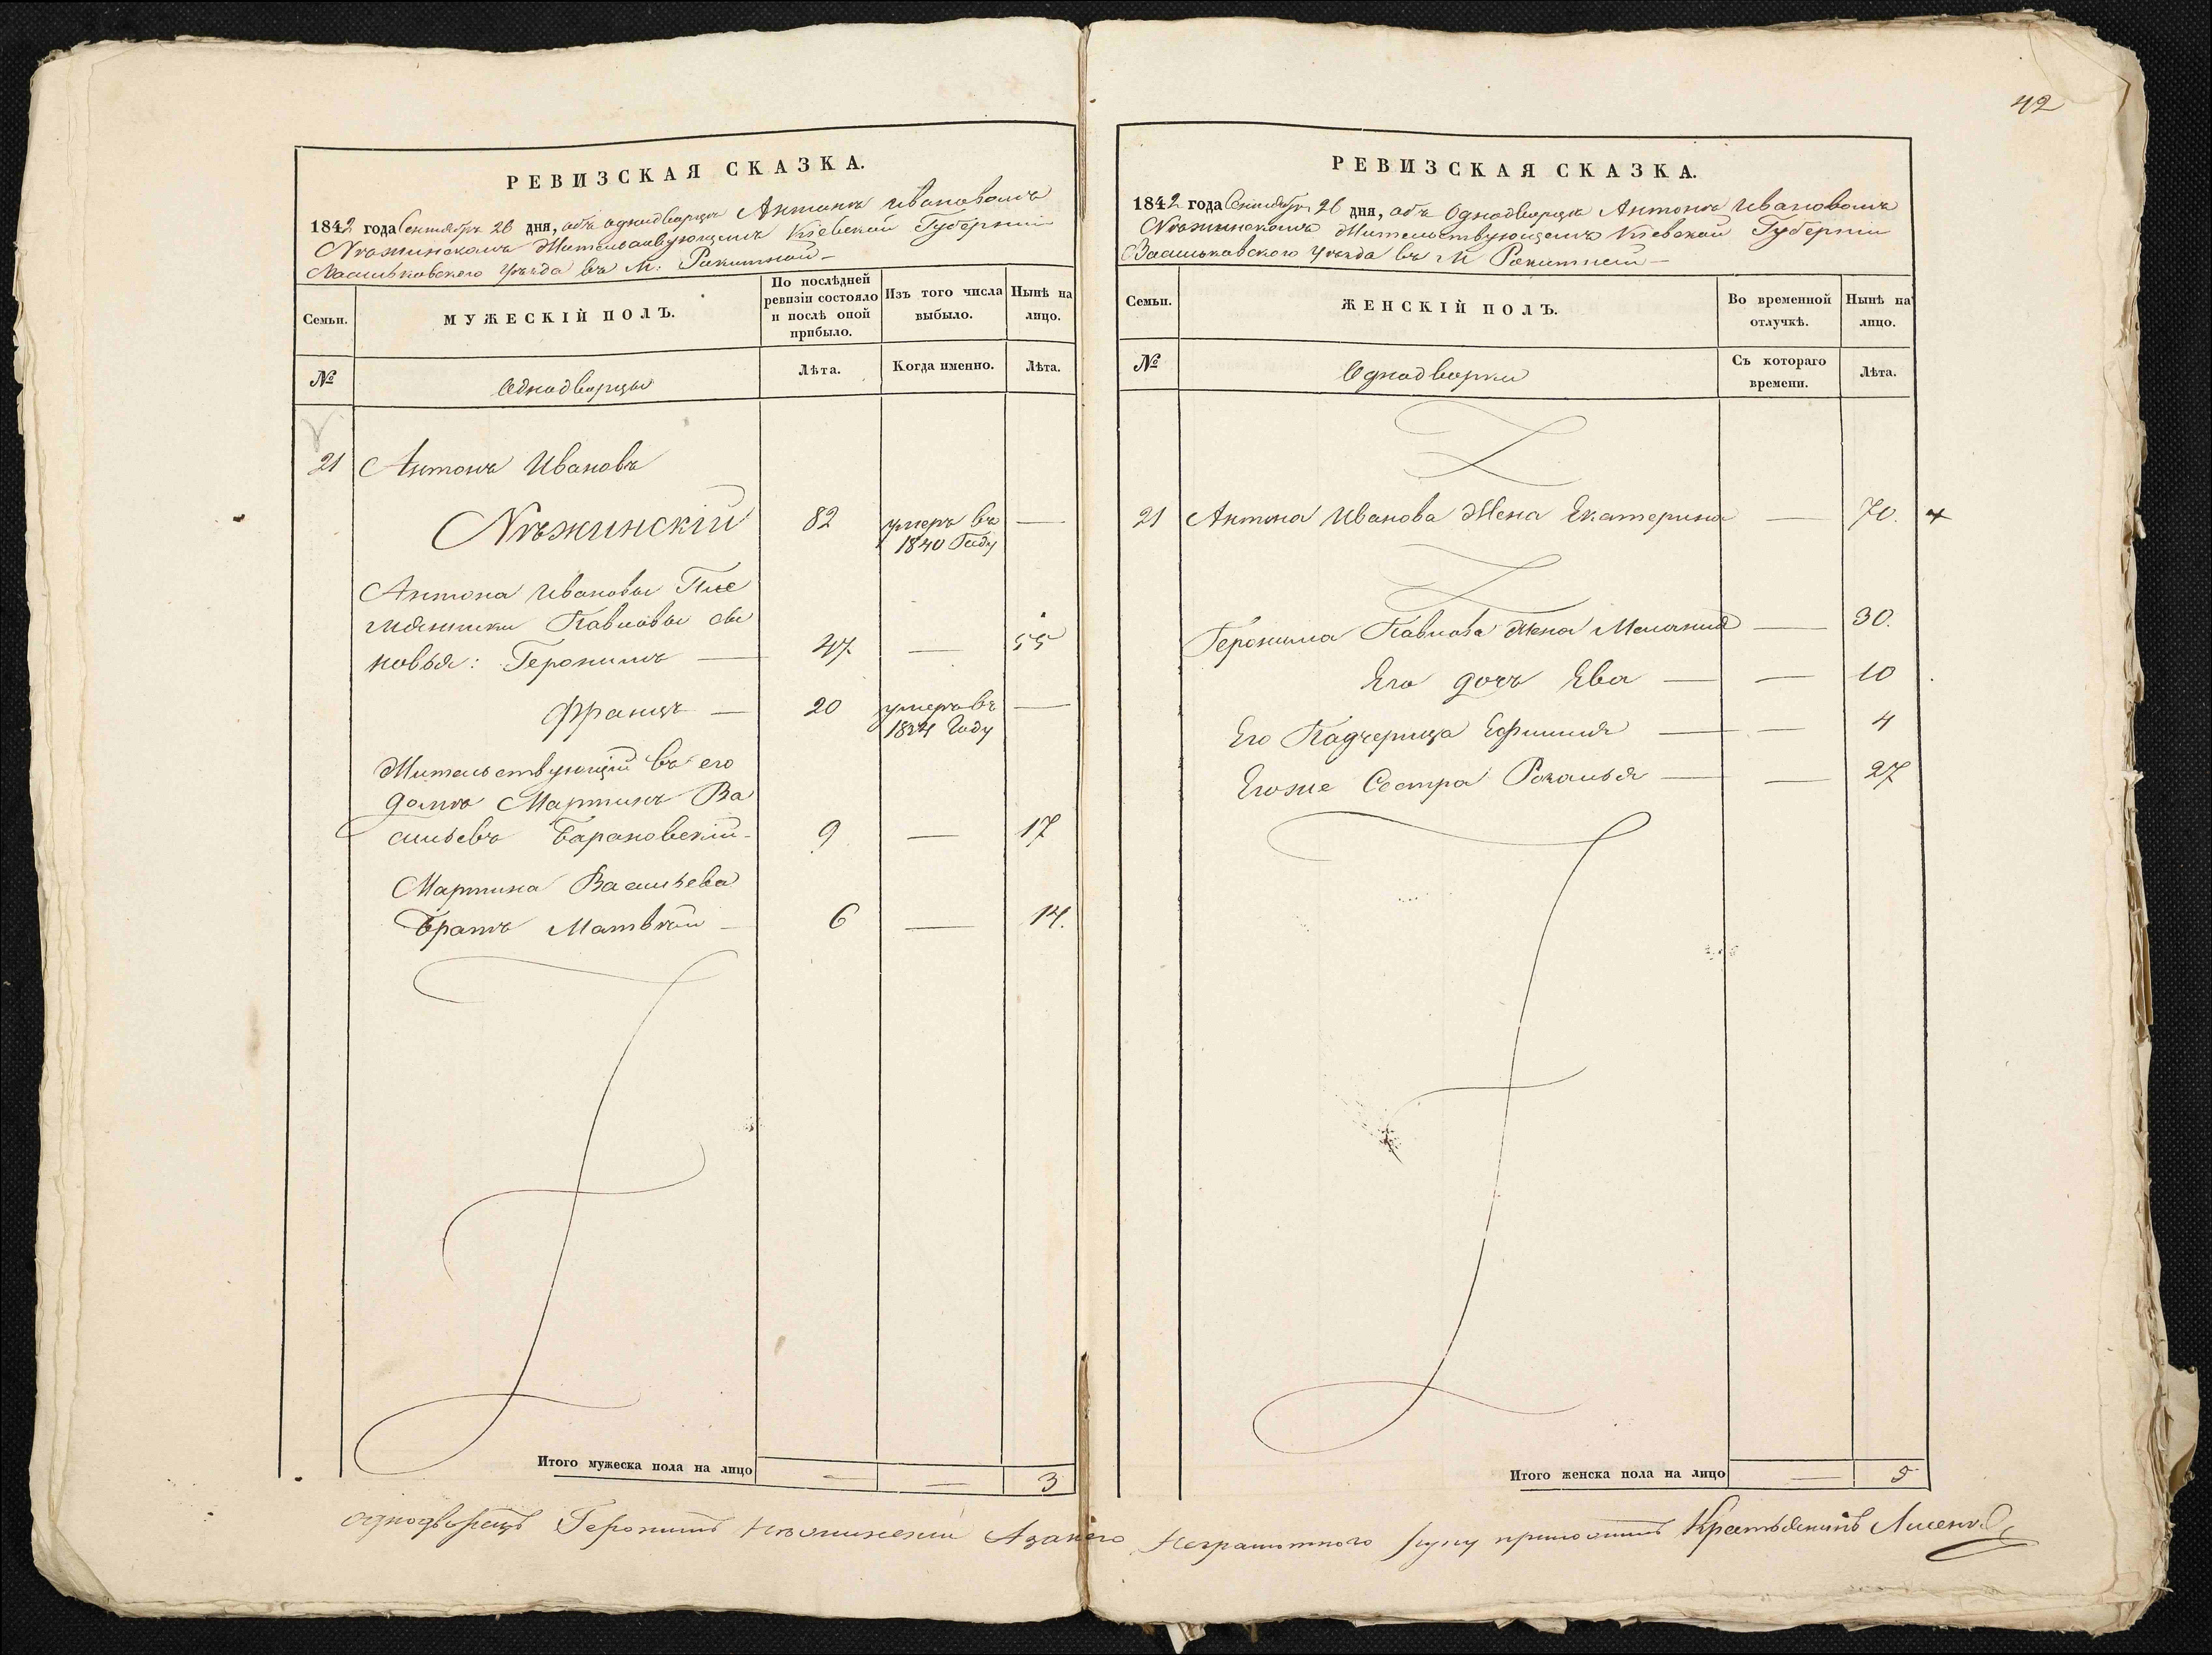 42
РЕВИЗСКАЯ СКАЗКА.
1842 года Сентября 26 дня, объ однодворцѣ Антонѣ Ивановомъ
Нѣжинскомъ Жительствующемъ Кіевской Губерніи
Васильковского Уѣзда въ М: Ракитной –
Семьи.
МУЖЕСКІЙ ПОЛЪ.
По послѣдней ревизіи состояло и послѣ оной прибыло.
Изъ того числа выбыло.
Нынѣ на лицо.
№
Однодворцы
Лѣта.
Когда именно.
Лѣта.
21 Антонъ Ивановъ
Нѣжинскій 82 умеръ въ —
1840 Году
Антона Ивановы Пле
мянники Павловы сы
новья: Геронимъ — 47 — 55
Францъ — 20 умеръ въ —
1834 Году
Жительствующій въ его
домѣ Мартинъ Ва
сильевъ Барановскій - 9 — 17
Мартина Васильева
Братъ Матвѣй - 6 — 14.
Итого мужеска пола на лицо — — 3
РЕВИЗСКАЯ СКАЗКА.
1842 года Сентября 26 дня, объ Однодворцѣ Антонѣ Ивановомъ
Нѣжинскомъ Жительствующемъ Кіевской Губерніи
Васильковского Уѣзда въ М Ракитной –
Семьи.
ЖЕНСКІЙ ПОЛЪ.
Во временной отлучкѣ.
Нынѣ на лицо.
№
Однодворки
Съ котораго времени.
Лѣта.
21 Антона Иванова Жена Екатерина — 70.
Геронима Павлова Жена Меланія — 30.
Его дочь Ева — — 10
Его Падчерица Ефимия — — 4
Егоже Сестра Розалья — — 27
Итого женска пола на лицо — 5
однодворецъ Геронимъ Нѣжинскій А занего Неграмотного руку приложилъ Крестьянинъ